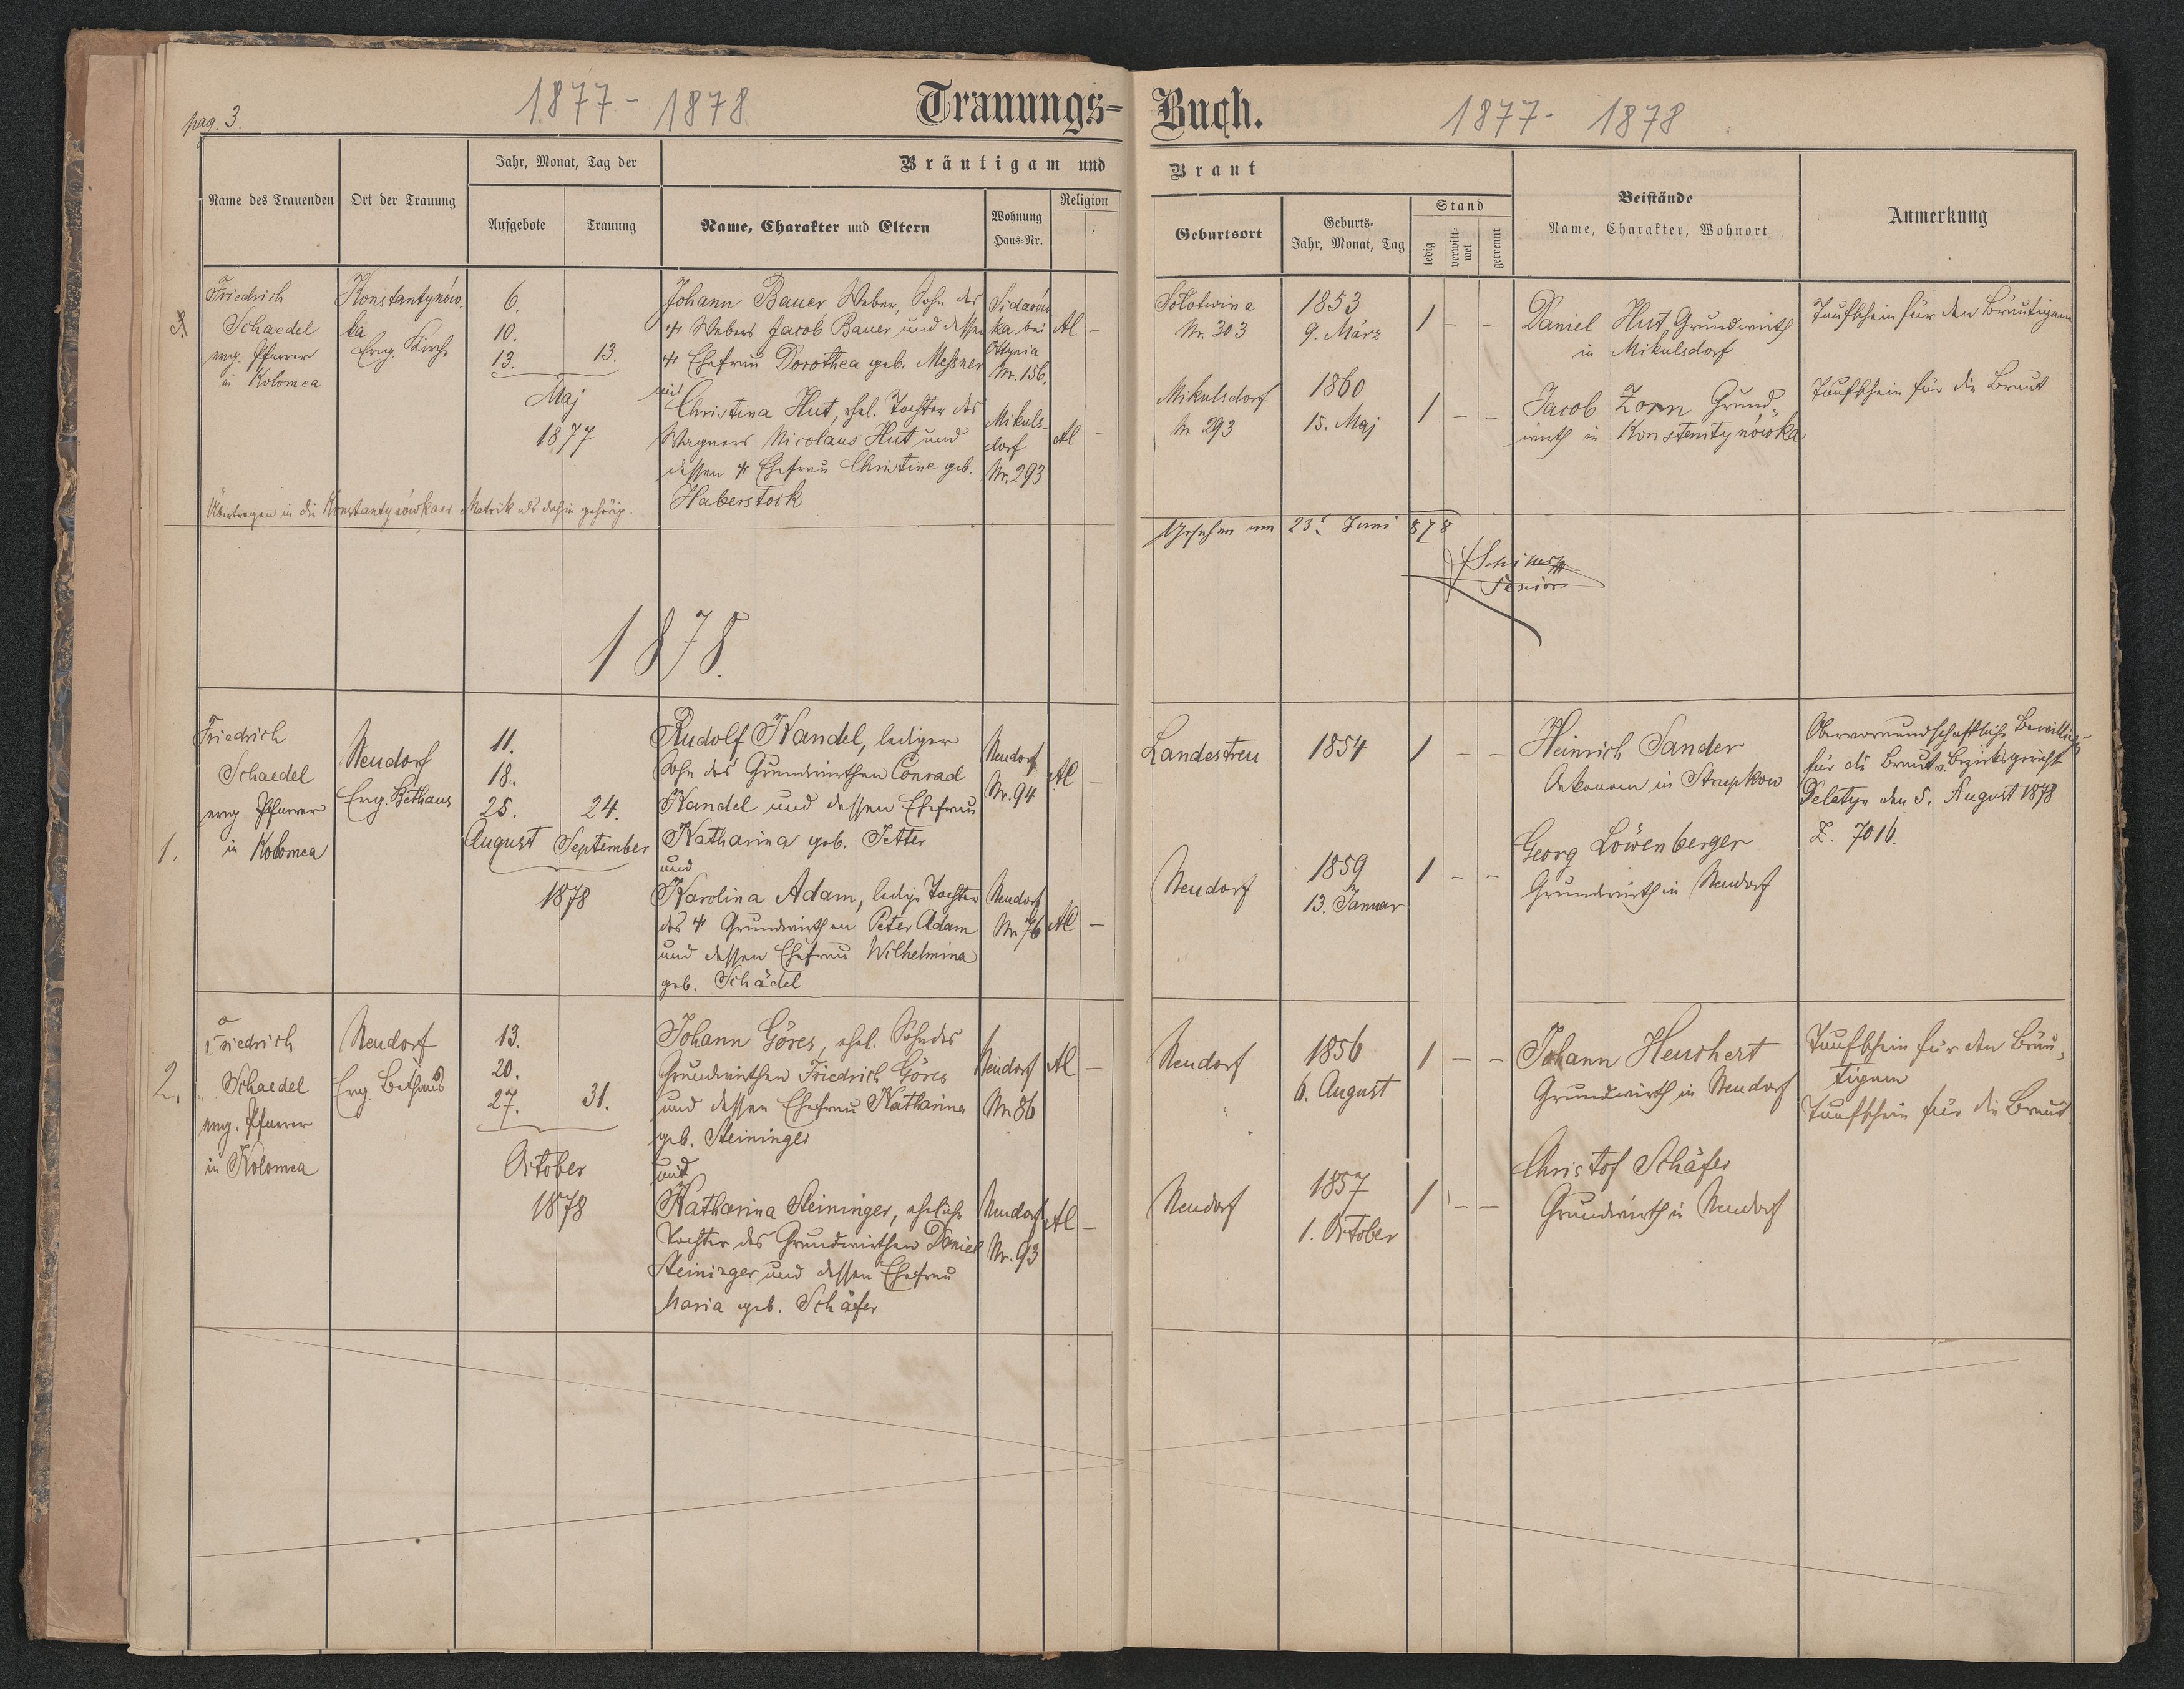 pag. 3.
1877 - 1878
Trauungs-Buch.
1877 - 1878
Name des Trauenden
Ort der Trauung
Jahr, Monat, Tag der
Aufgebote
Trauung
Bräutigam und Braut
Name, Charakter und Eltern
Wohnung
Haus-Nr.
Religion
Geburtsort
Geburts-
Jahr, Monat, Tag
Stand
ledig
verwitt-
wet
getrennt
Beistände
Name, Charakter, Wohnort
Anmerkung
3.
Friedrich
Schaedel
evng. Pfarrer
in Kolomea
Konstantynów-
ka
Evg. Kirche
6.
10.
13.
13.
Maj
1877
Johann Bauer, Weber, Sohn des
† Webers Jacob Bauer, und dessen
† Ehefrau Dorothea geb. Messner
und
Christina Hut, ehel. Tochter des
Wagners Nicolaus Hut und
dessen † Ehefrau Christine geb.
Haberstock
ka bei
Ottynia
Nr. 156.
Mikuls-
dorf
Nr. 293
Al -
Al -
Sołotwina
Nr. 303
Mikulsdorf
Nr 293
1853
9. März
1860
15. Maj
1 - -
1 - -
Daniel Hut, Grundwirth
in Mikulsdorf
Jacob Zorn Grund-
wirth in Konstantynówka
Taufschein für den Bräutigam
Taufschein für die Braut
Übertragen in die Konstantynówkaer Matrik als dahin gehörig.
Gesehen am 23. Juni 878
Senior
1878.
1.
Friedrich
Schaedel
evng. Pfarrer
in Kolomea
Neudorf
Evg. Bethaus
11.
18.
25.
August
24.
September
1878
Rudolf Kandel, lediger
Sohn des Grundwirthen Conrad
Kandel und dessen Ehefrau
Katharina geb. Jetter
und
Karolina Adam, ledige Tochter
des † Grundwirthen Peter Adam
und dessen Ehefrau Wilhelmina
geb. Schädel
Neudorf
Nr. 94
Neudorf
Nr. 76
Al -
Al -
Landestreu
Neudorf
1854
1859
13. Januar
1 - -
1 - -
Heinrich Sander
Oekonom in Strupkow
Georg Löwenberger
Grundwirth in Neudorf
Obervormundschaftliche
für die Braut v. Bezirksgericht
Delatyn den 5. August 1878
Z. 7016.
2.
Friedrich
Schaedel
evng. Pfarrer
in Kolomea
Neudorf
Evg. Bethaus
13.
20.
27.
31.
October
1878
Johann Göres, ehel. Sohn des
Grundwirthen Friedrich Göres
und dessen Ehefrau Katharina
geb. Steininger
und
Katharina Steininger, eheliche
Tochter des Grundwirthen Daniel
Steininger und dessen Ehefrau
Maria geb. Schäfer
Neudorf
Nr. 86
Neudorf
Nr. 93
Al -
Al -
Neudorf
Neudorf
1856
6. August
1857
1. October
1 - -
1 - -
Johann Heuchert
Grundwirth in Neudorf
Christof Schäfer
Grundwirth in Neudorf
Taufschein für den Bräu-
tigam
Taufschein für die Braut